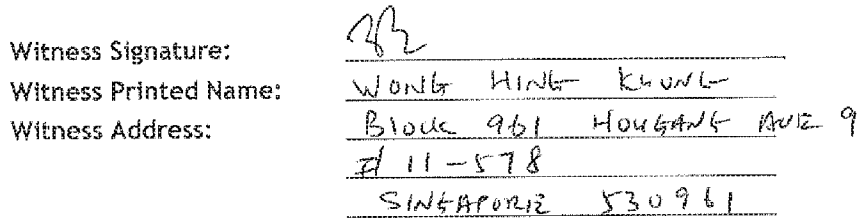 Witness Signature:
Witness Printed Name: WONG HING KHUNG
Witness Address: Block 961 HOUGANG AVE 9
# 11-578
SINGAPORE 530961